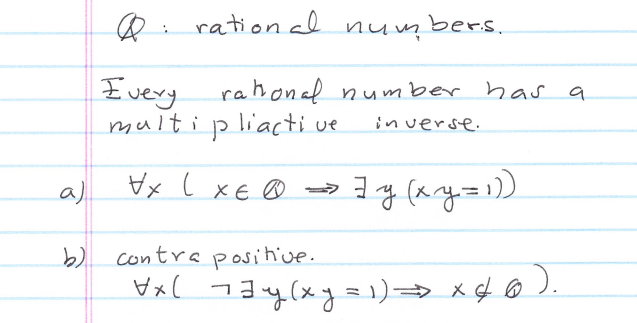 Q : rational numbers.
Every rational number has a
multipliactive inverse.
a) ∀x ( x ∈ Q ⇒ ∃ y (xy = 1))
b) contrapositive.
∀x( ¬∃y(xy = 1) ⇒ x ∉ Q ).